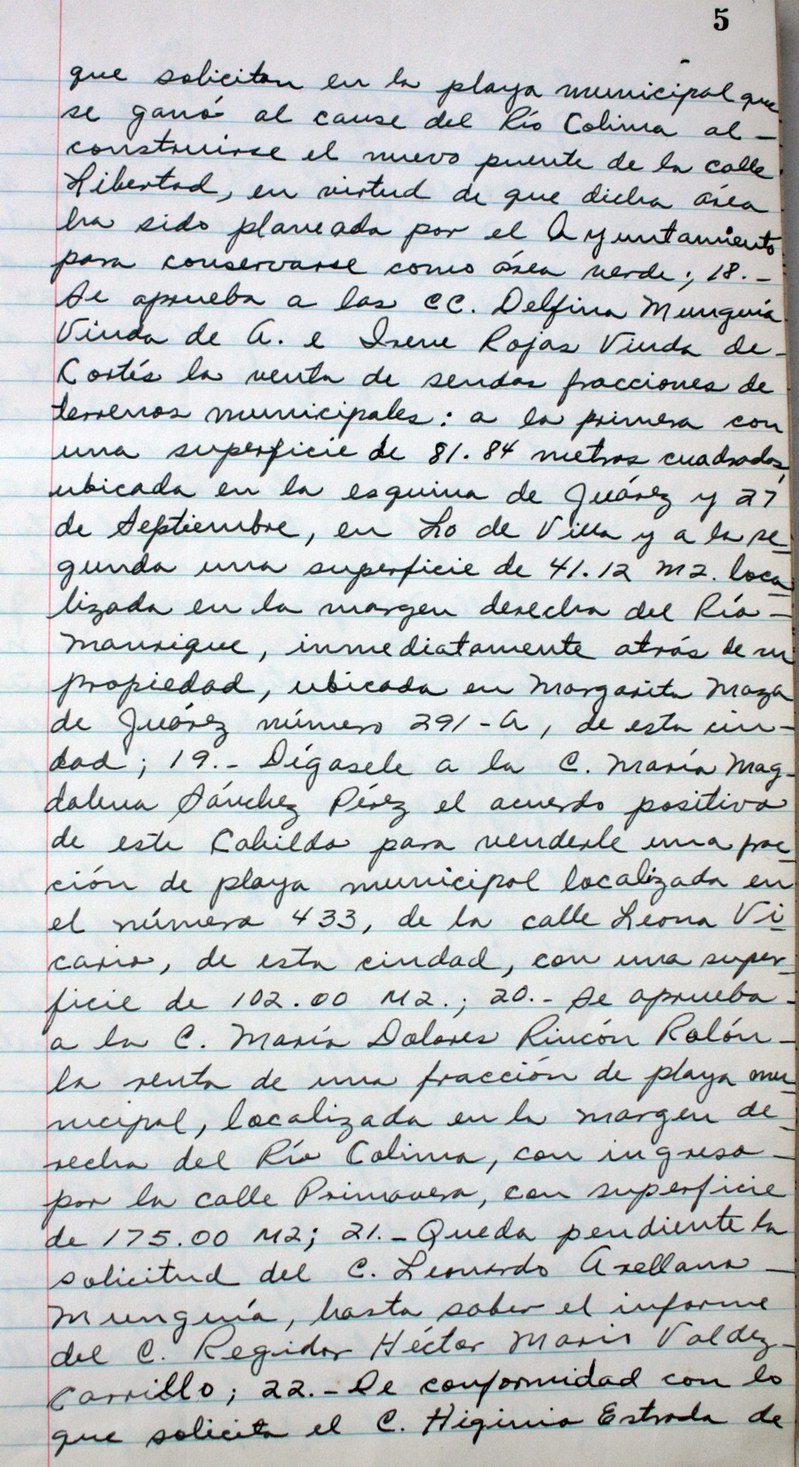 5
que solicitan en la playa municipal que
se ganó al cause del Río Colima al -
construirse el nuevo puente de la calle
Libertad, en virtud de que dicha área
ha sido planeada por el Ayuntamiento
para conservarse como área verde; 18.-
Se aprueba a las CC. Delfina Munguía
Viuda de A. e Irene Rojas Viuda de -
Cortés la venta de sendas fracciones de
terrenos municipales: a la primera con
una superficie de 81.84 metros cuadrados,
ubicada en la esquina de Juárez y 27
de Septiembre, en Lo de Villa y a la se-
gunda una superficie de 41.12 M2. loca-
lizada en la margen derecha del Río -
Manrique, inmediatamente atrás de su
propiedad, ubicada en Margarita Maza
de Juárez número 291-A, de esta ciu-
dad; 19.- Dígasele a la C. María Mag-
dalena Sánchez Pérez el acuerdo positivo
de este Cabildo para venderle una frac-
ción de playa municipal localizada en
el número 433, de la calle Leona Vi-
cario, de esta ciudad, con una super-
ficie de 102.00 M2.; 20.- Se aprueba -
a la C. María Dolores Rincón Rolón -
la renta de una fracción de playa mu-
nicipal, localizada en la margen de-
recha del Río Colima, con ingreso -
por la calle Primavera, con superficie
de 175.00 M2; 21.- Queda pendiente la
solicitud del C. Leonardo Arellano -
Munguía, hasta saber el informe
del C. Regidor Héctor Mario Valdez -
Carrillo; 22.- De conformidad con lo
que solicita el C. Higinio Estrada de